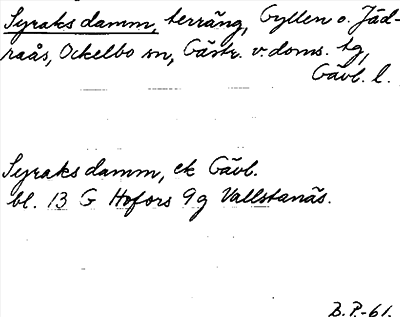 Syraks damm, terräng, Gyllen o. Jäd-
raås, Ockelbo sn, Gästr. v. doms. tg,
Gävl. l.
Syraks damm, ek Gävb.
bl. 13 G Hofors 9g Vallstanäs.
B.P.-61.